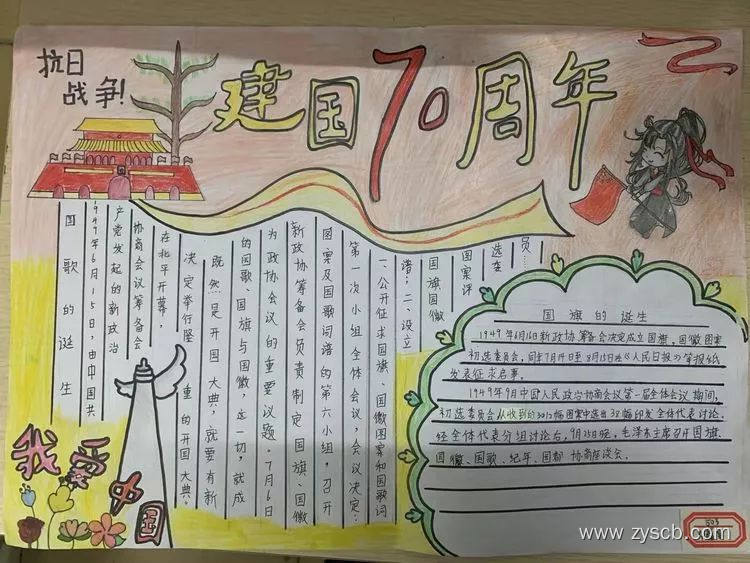 抗日
战争!
建国70周年
国歌的诞生
1949年6月15日,由中国共
产党发起的新政治
协商会议筹备会
在北平开幕,
决定举行隆重的开国大典。
既然是开国大典,就要有新
的国歌、国旗与国徽,这一切,就成
为政协会议的重要议题。7月6日
新政协筹备会负责制定国旗、国徽
图案及国歌词谱的第六小组,召开
第一次小组全体会议,会议决定:
一、公开征求国旗、国徽图案和国歌词
谱;二、设立
国旗国徽
图案评
选委
员……
国旗的诞生
1949年6月16日新政协筹备会决定成立国旗、国徽图案
初选委员会,同年7月14日至8月15日在《人民日报》等报纸
发表征求启事。
1949年9月中国人民政治协商会议第一届全体会议期间,
初选委员会从收到的3012幅图案中选出38幅印发全体代表讨论。
经全体代表分组讨论后,9月25日晚,毛泽东主席召开国旗、
国徽、国歌、纪年、国都协商座谈会。
我爱中国
503
www.zyscb.com